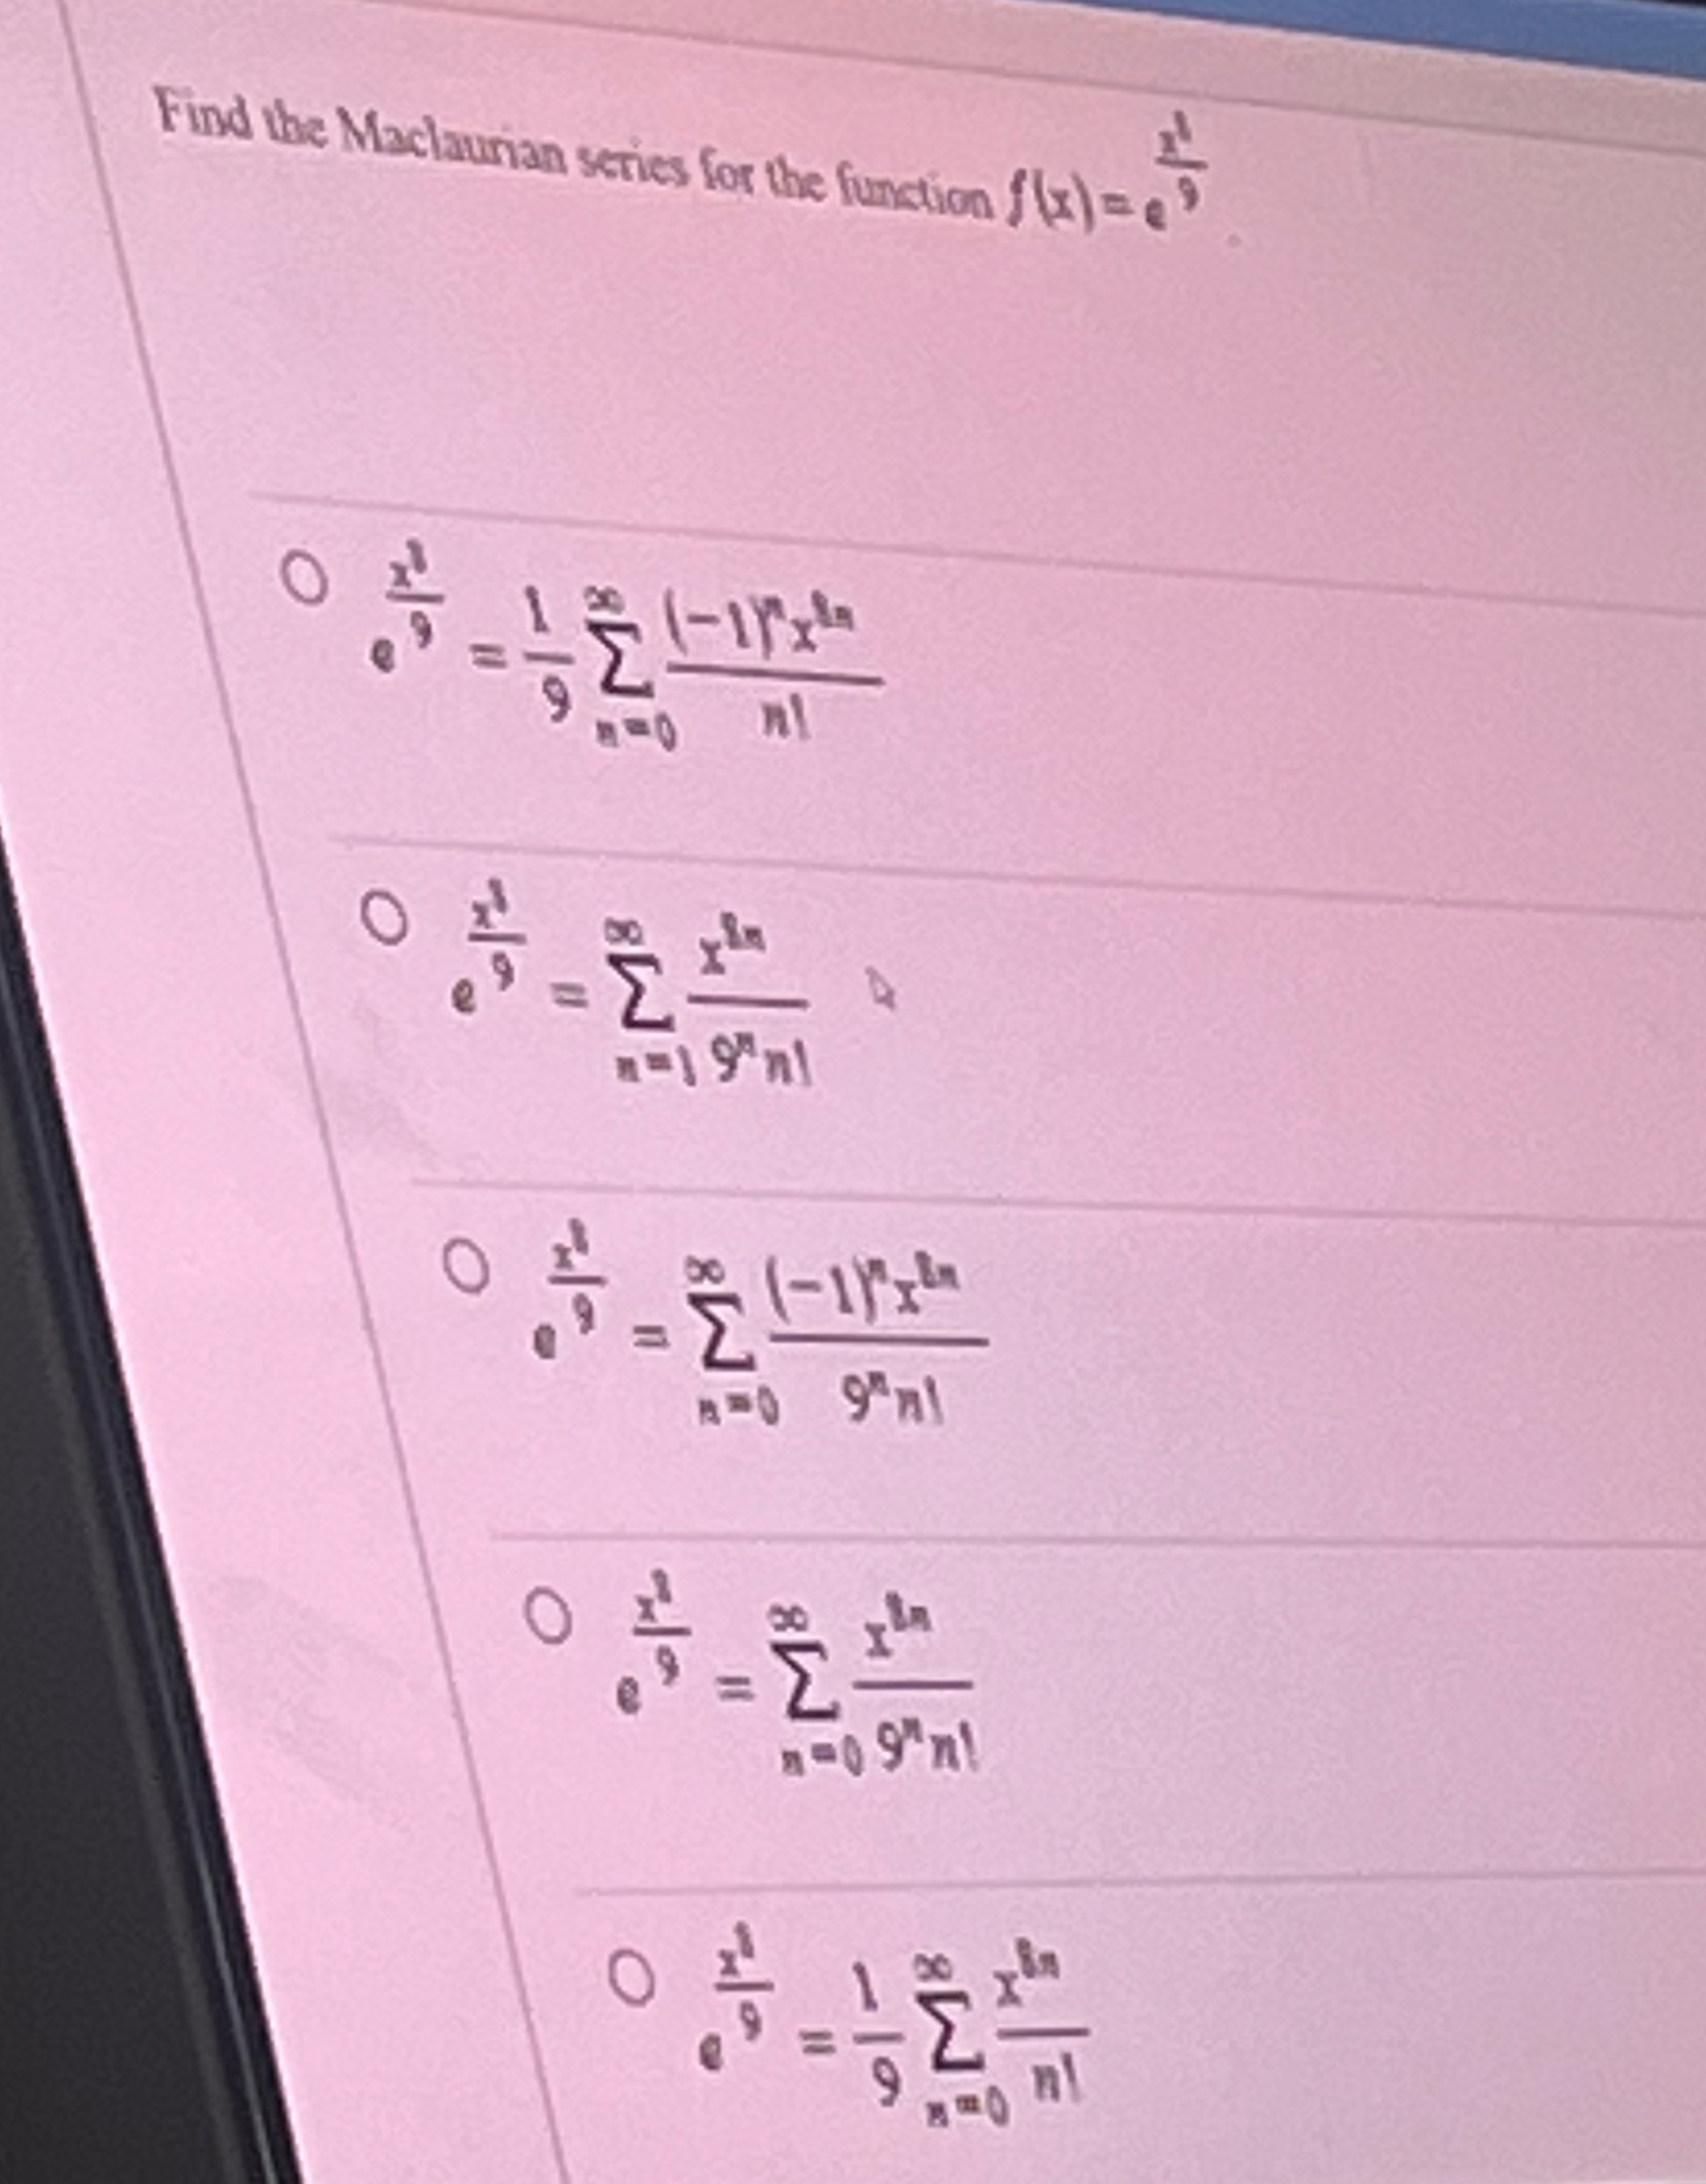 Find the Maclaurian series for the function f(x) = e^(x^8/9).
e^(x^8/9) = 1/9 ∑_{n=0}^{∞} (-1)^n x^{8n} / n!
e^(x^8/9) = ∑_{n=1}^{∞} x^{8n} / 9^n n!
e^(x^8/9) = ∑_{n=0}^{∞} (-1)^n x^{8n} / 9^n n!
e^(x^8/9) = ∑_{n=0}^{∞} x^{8n} / 9^n n!
e^(x^8/9) = 1/9 ∑_{n=0}^{∞} x^{8n} / n!